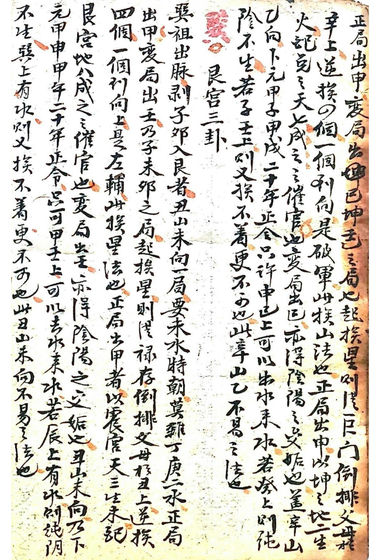 正局出甲変局出巽巳坤壬之局也起挨星则従巨门倒排文曲
辛上逆挨四個一個到向是破軍此挨山法也正局出申以坤之地一生
火記之天七成之之催官也変局出巳亦得陰陽之父姤也盖辛山
乙向下元甲子甲戌二十年正令只許申巳上可以出水来水若癸上则纯
陰不生若子壬上则又挨不着更不可也此辛山乙不易之法也
艮宫三卦
巽祖出脉剥子卯入艮者丑山未向一局要未水時朝巽雞丁庚二水正局
出甲変局出壬乃子未卯之局起挨星则従禄存倒排文曲於丑上逆挨
四個一個到向上是左輔此挨星法也正局出甲者以震宫天三生未記
艮宫地八成之之催官也変局出壬亦得陰陽之父姤也丑山未向乃下
元甲申甲午二十年正令只可甲壬上可以去水来水若辰上有水则纯阴
不生巽上有水则又挨不着更不可也此丑山未向不易之法也